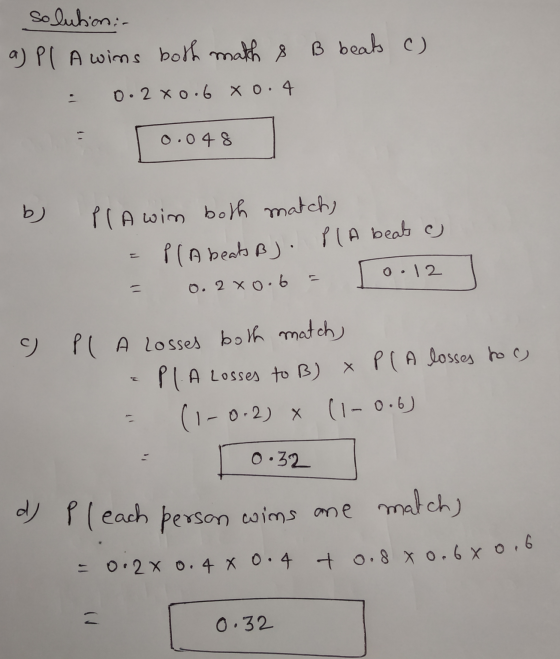 Solution:-
a) P( A wins both math & B beats C)
= 0.2 x 0.6 x 0.4
= 0.048
b) P(A win both match)
= P(A beats B). P(A beats C)
= 0.2 x 0.6 = 0.12
c) P( A Losses both match)
= P(A Losses to B) x P(A losses to C)
= (1-0.2) x (1-0.6)
= 0.32
d) P(each person wins one match)
= 0.2 x 0.4 x 0.4 + 0.8 x 0.6 x 0.6
= 0.32